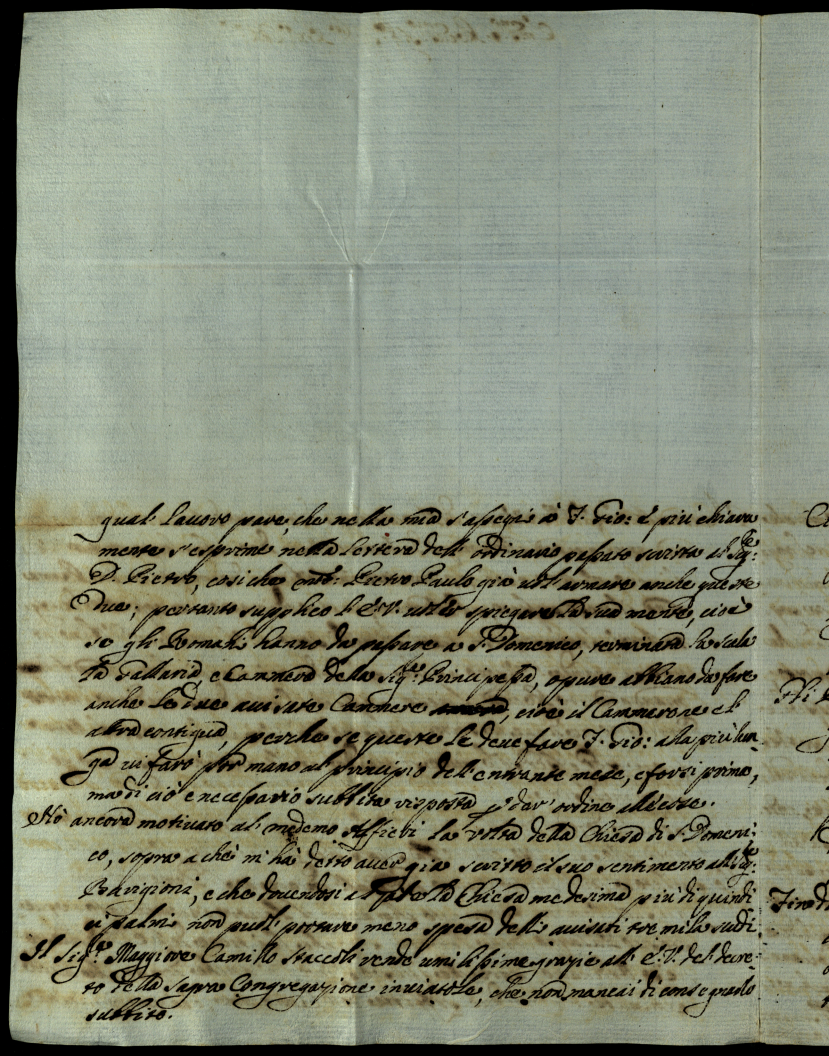 qual lavoro pare, che nella mia s'assegni à F. Gio: e più chiara
mente s'esprime nella lettera dell'ordinario passato scritta al Sig.re
D. Pietro, così che Pietro Paulo già armare anche queste
due; pertanto supplico l'E.V. spiegare la sua mente, cioè
se gli Romani hanno da passare a S. Domenico, terminata la scala
ta Gallaria, e Cammera della Sig.ra Principessa, o pure abbiano da fare
anche le due avisate Cammere, cioè il Cammarone e l'
altra contigua, perche se queste le deve fare F. Gio: alla più lun
ga vi farò por mano al principio dell'entrante mese, e forsi prima,
ma di ciò è necessario subbito risposta p dar' ordine
Hò ancora motivato al medemo Alfieri la volta della Chiesa di S. Domeni:
co, sopra a che m'hà detto aver già scritto il suo sentimento al Sig.re
e che dovendosi la Chiesa medesima più di quindi
ci palmi non può portare meno spesa delli avisati tre mila scudi.
Il Sig.re Maggiore Camillo Staccoli rende umilissime grazie all'E.V. del decre:
to della Sagra Congregazione inviatole, che non mancai di consegnarlo
subbito.